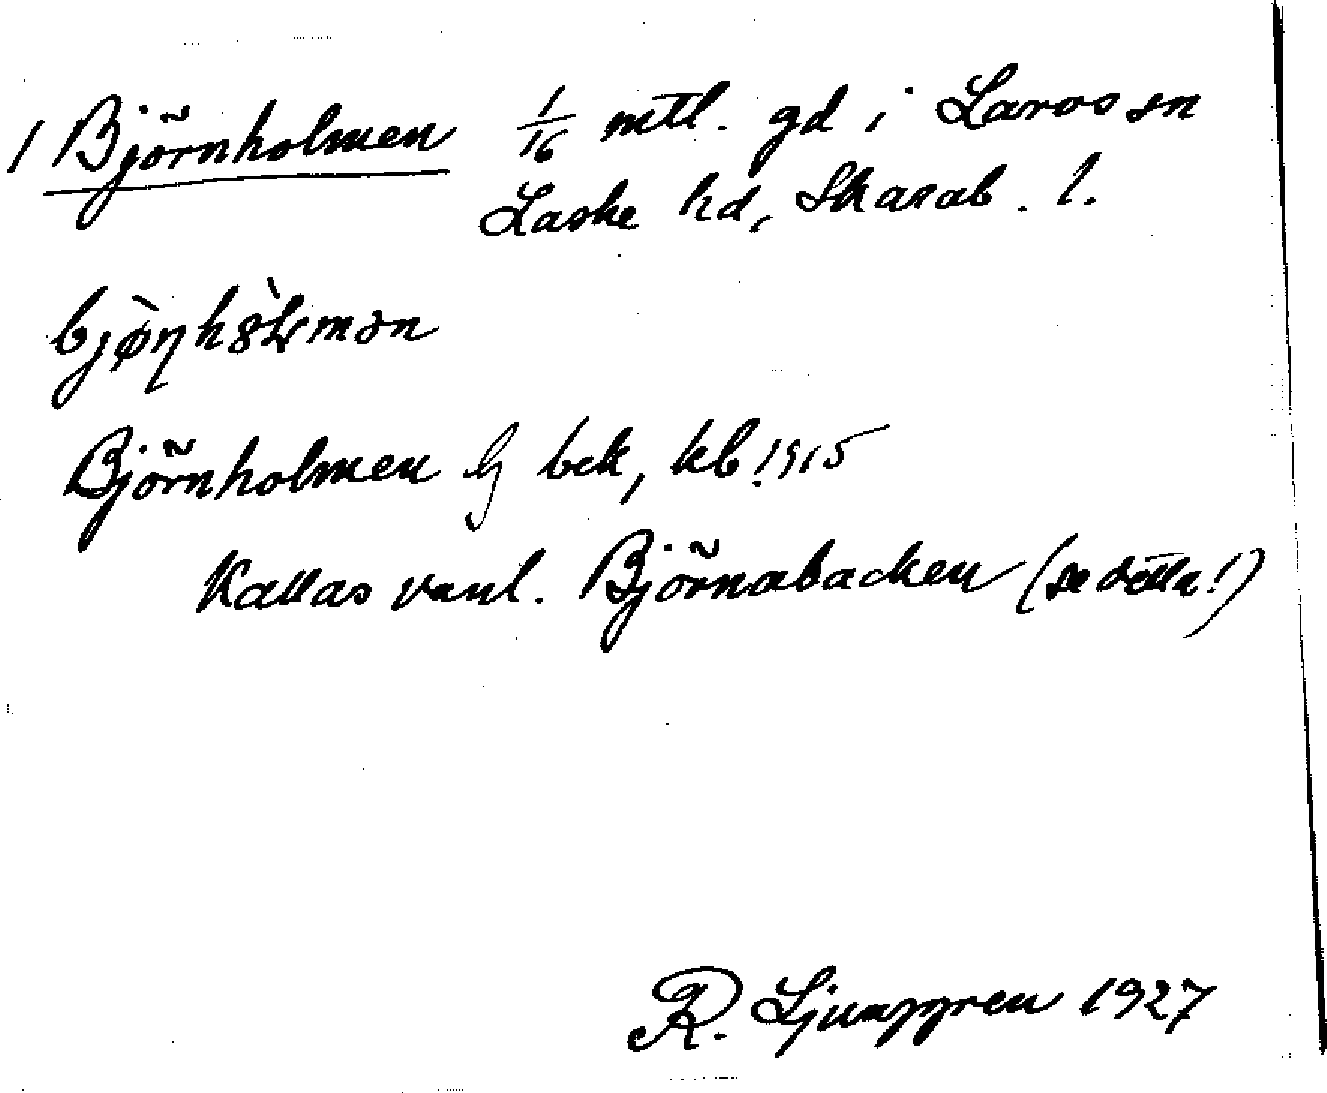 1 Björnholmen 1/16 mtl. gd i Larvs sn
Laske hd, Skarab. l.
Björnholmen lj bek, kb 1915
Kallas vanl. Björnabacken (se detta!)
R. Ljunggren 1927